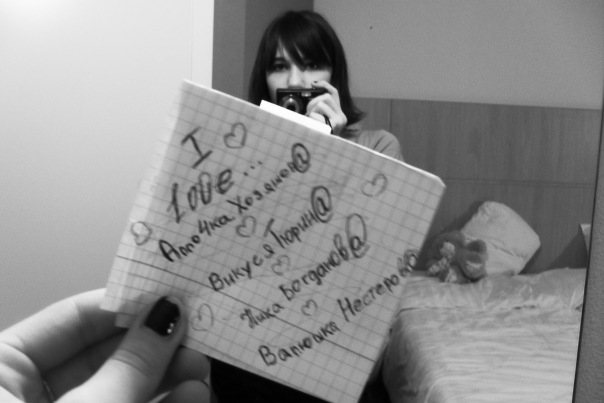 I
love...
Аллочка Хозяинов@
Викуся Тюрин@
Ника Богданов@
Валюшка Нестеров@